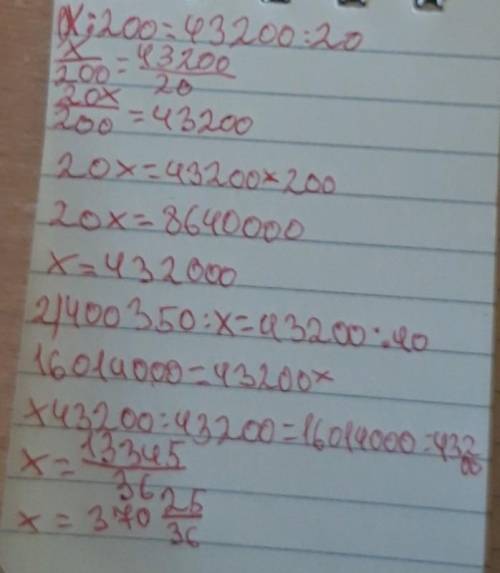 1) x:200=43200:20
x/200=43200/20
20x/200=43200
20x=43200×200
20x=8640000
x=432000
2)400350:x=43200:40
16014000=43200x
x43200:43200=16014000:43200
x=13345/36
x=370 25/36